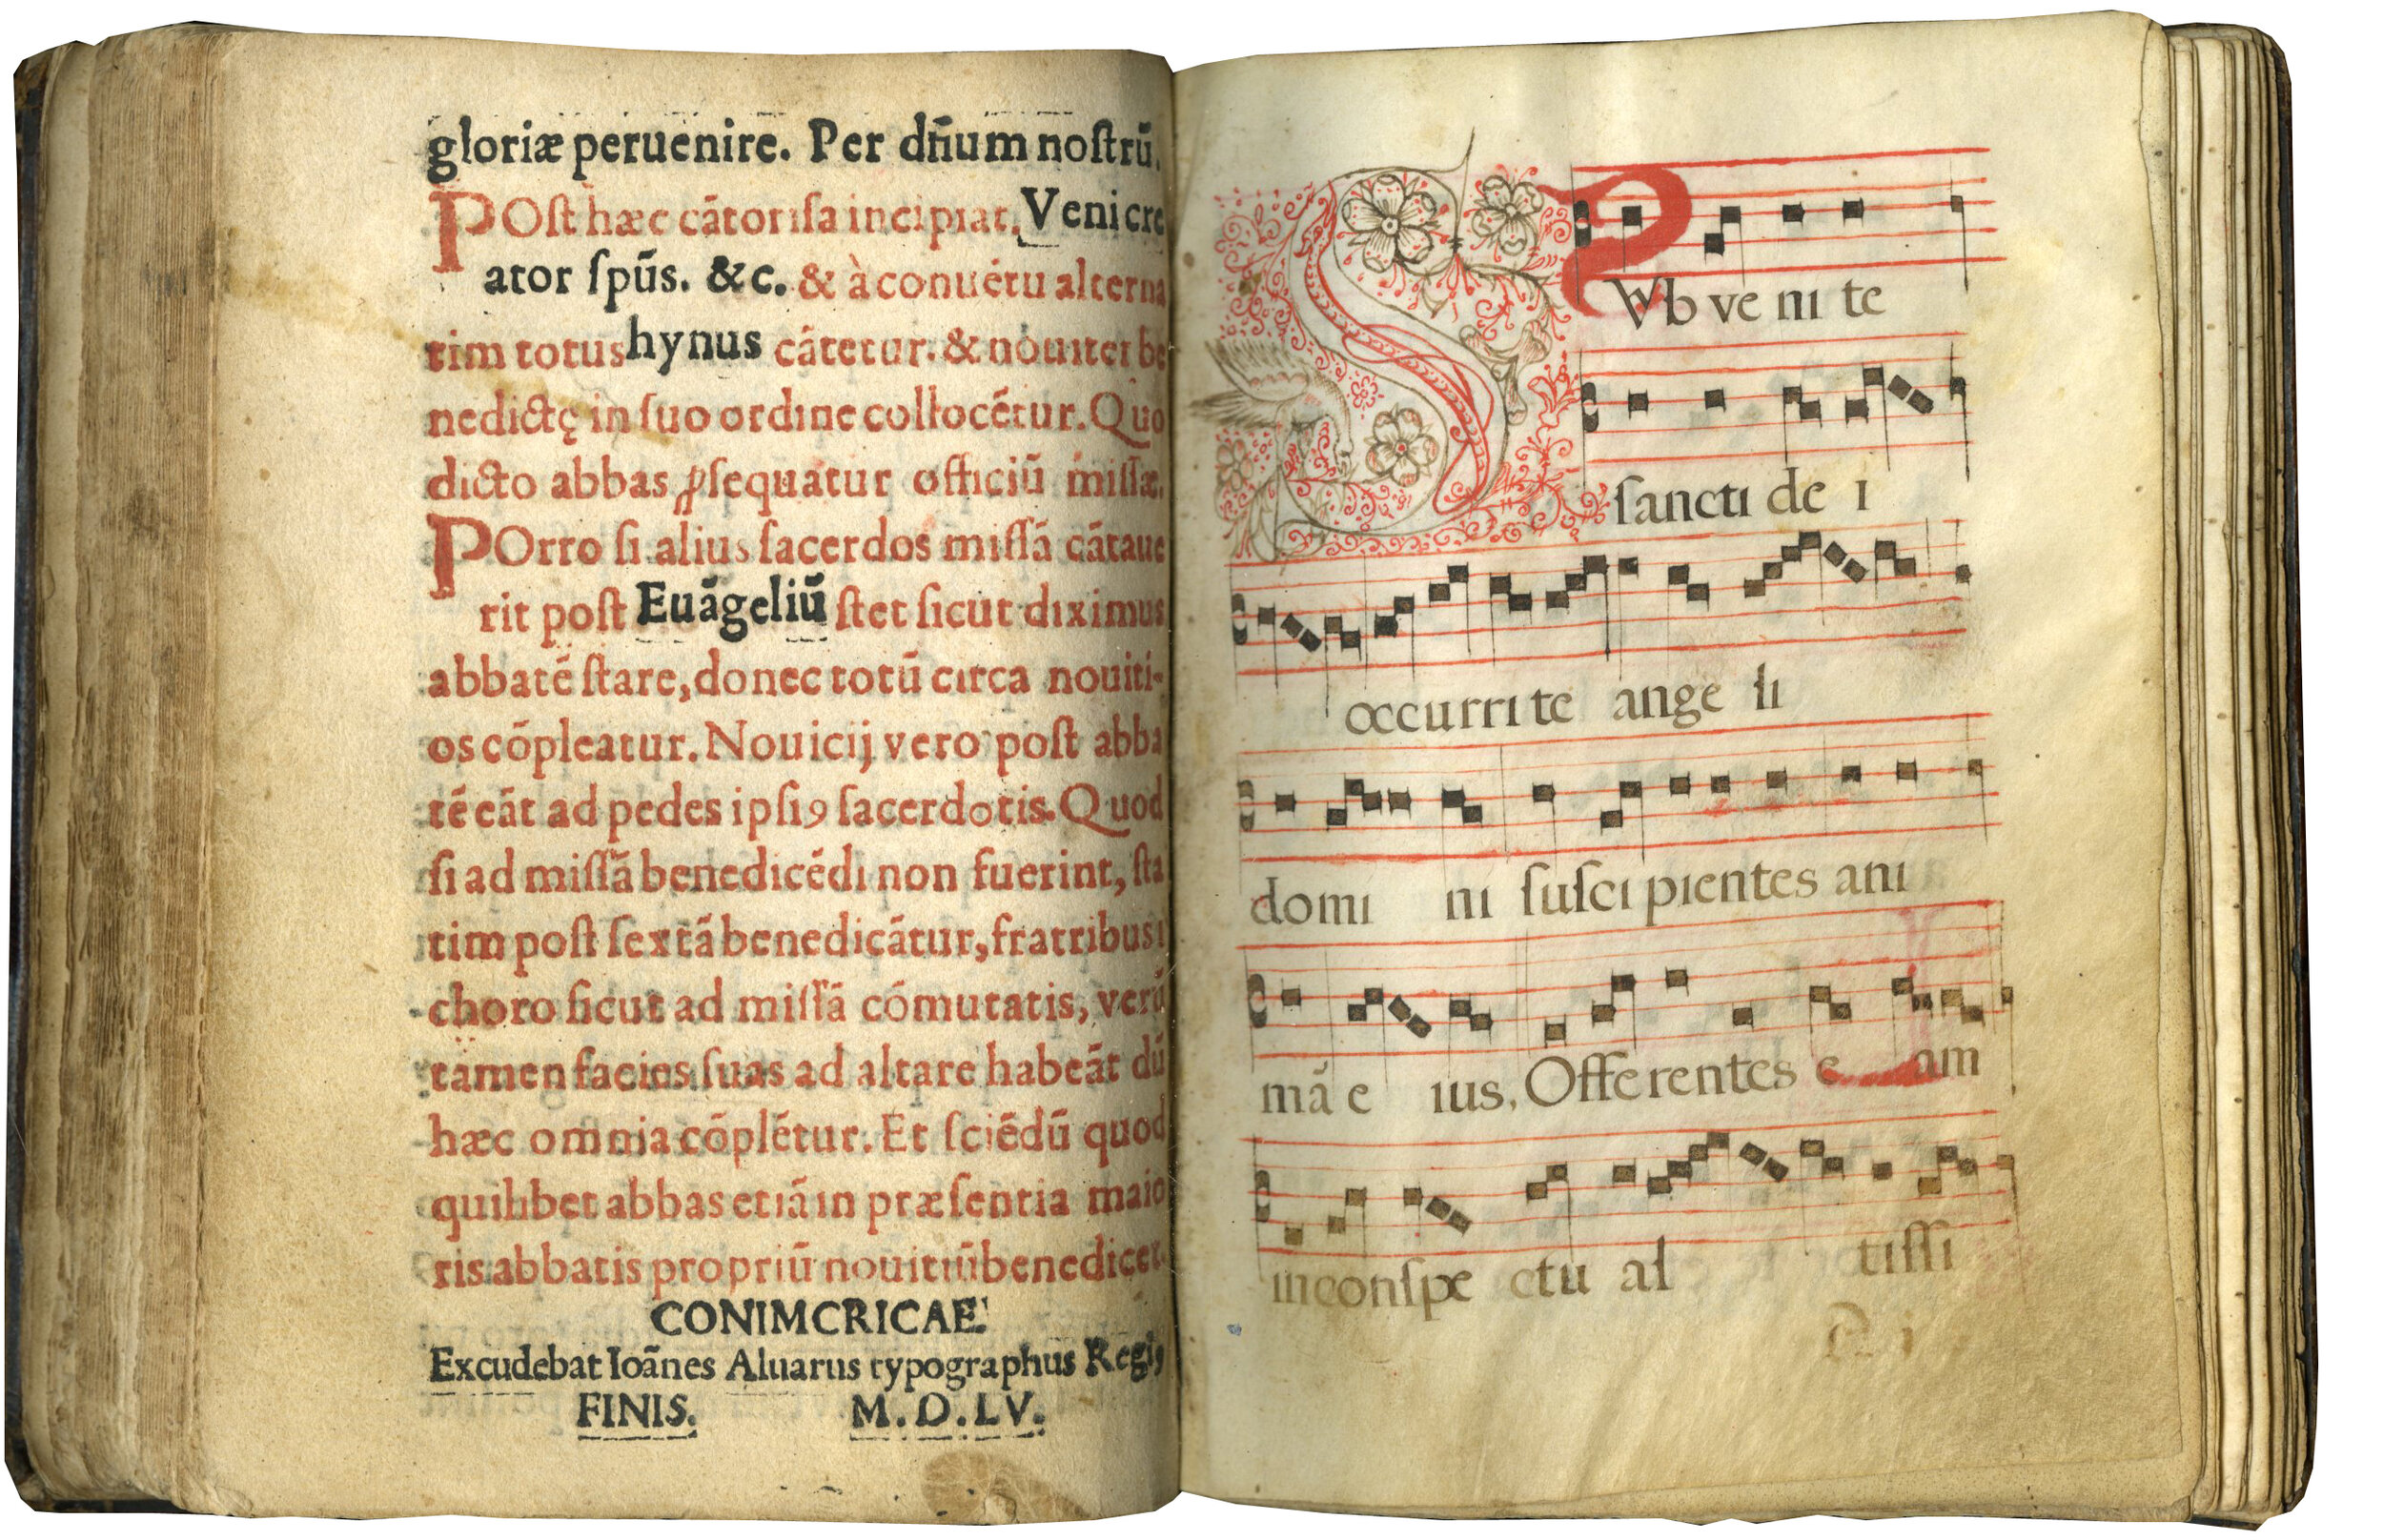 gloriæ peruenire. Per dñum noſtrũ.
POſt hæc cãtoriſa incipiat. Veni cre
ator ſpũs. &c. & à conuẽtu alterna
tim totus hynus cãtetur. & nouiter be
nedictę in ſuo ordine collocẽtur. Quo
dicto abbas ꝓſequatur officiũ miſſæ.
POrro ſi alius ſacerdos miſſã cãtaue
rit poſt Euãgeliũ ſtet ſicut diximus
abbatẽ ſtare, donec totũ circa nouiti-
os cõpleatur. Nouicij vero poſt abba
tẽ eãt ad pedes ipſiꝯ ſacerdotis. Quod
ſi ad miſſã benedicẽdi non fuerint, ſta
tim poſt ſextã benedicãtur, fratribus i
choro ſicut ad miſſã cõmutatis, verũ
tamen facies ſuas ad altare habeãt dũ
hæc omnia cõplẽtur. Et ſciẽdũ quod
quilibet abbas etiã in præſentia maio
ris abbatis propriũ nouitiũ benedicet.
CONIMCRICAE.
Excudebat Ioãnes Aluarus typographus Regiꝯ
FINIS. M.D.LV.
SVb ve ni te
ſancti de i
occurri te ange li
domi ni ſuſci pientes ani
mã e ius. Offe rentes e am
in conſpe ctu al tiſſi